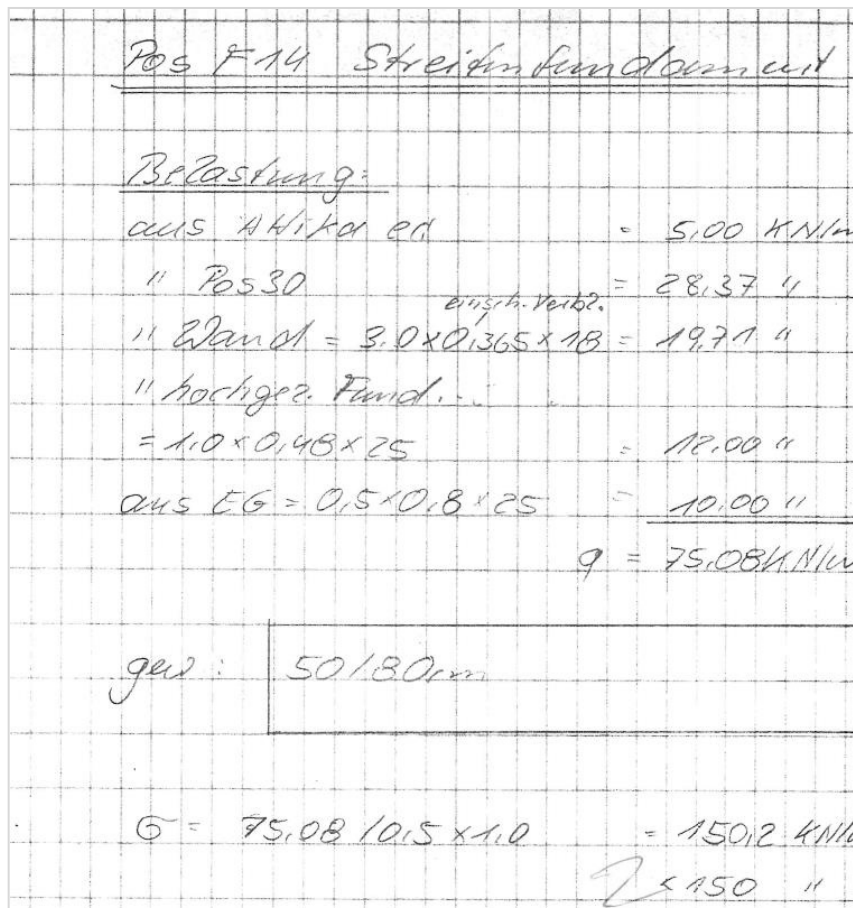 Pos F14 Streifenfundament
Belastung:
aus Attika
= 5,00 KN/m
" Pos30 = 28,37 "
einsch. Verbl.
" Wand = 3.0 x 0,365 x 18 = 19,71 "
" hochgez. Fund.
= 1,0 x 0,48 x 25 = 12,00 "
aus EG = 0,5 x 0,8 x 25 = 10,00 "
q = 75,08 KN/m
gew: 50/80cm
σ = 75,08 / 0,5 x 1,0 = 150,2 KN/
< 150 "